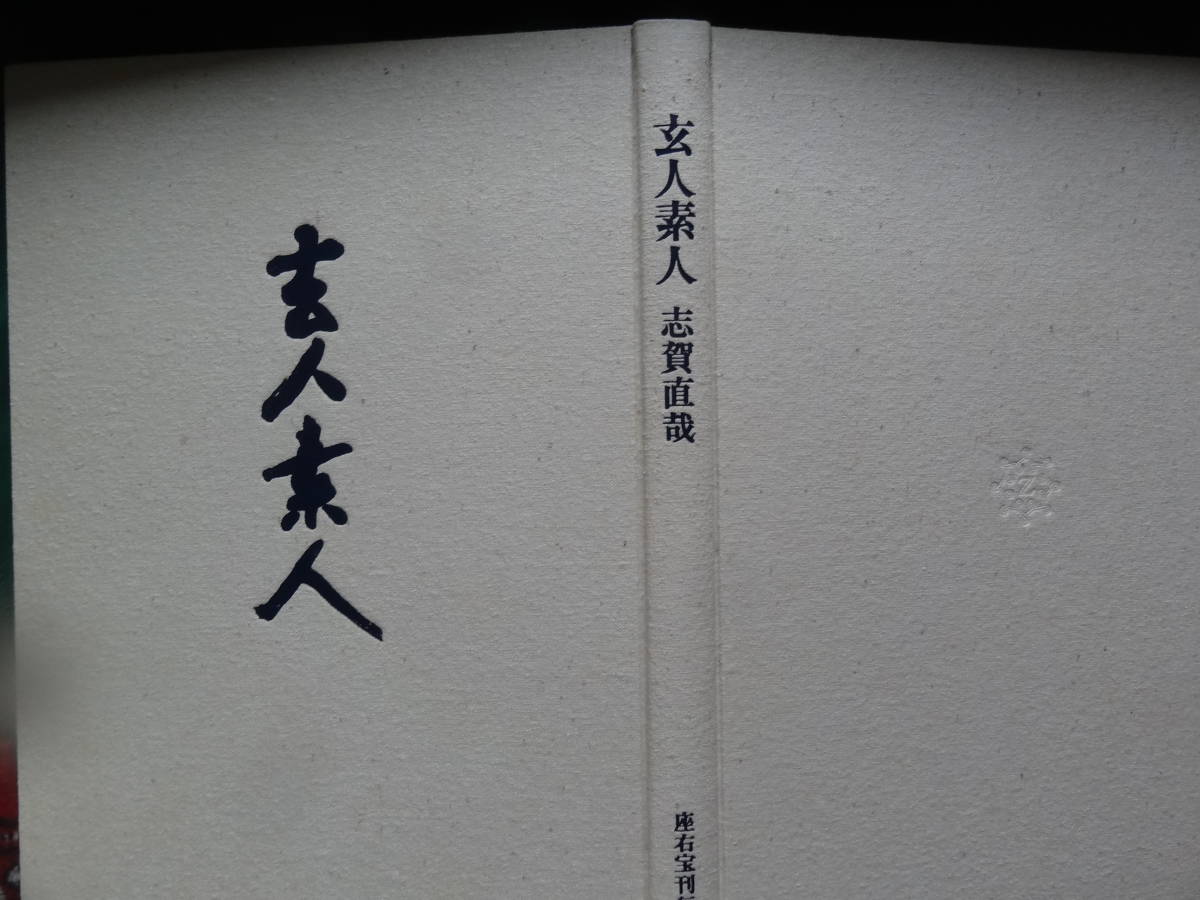 玄人素人
玄人素人 志賀直哉
座右宝刊